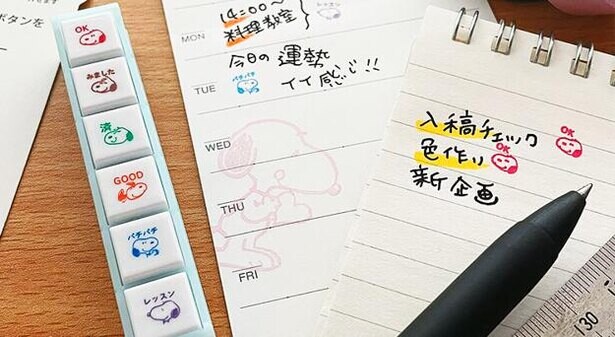 ボタンを
OK
みました
済
GOOD
パチパチ
レッスン
MON
14:00〜
料理教室
レッスン
TUE
今日の運勢
パチパチ
イイ感じ!!
WED
THU
FRI
入稿チェック
OK
色作り
OK
新企画
30